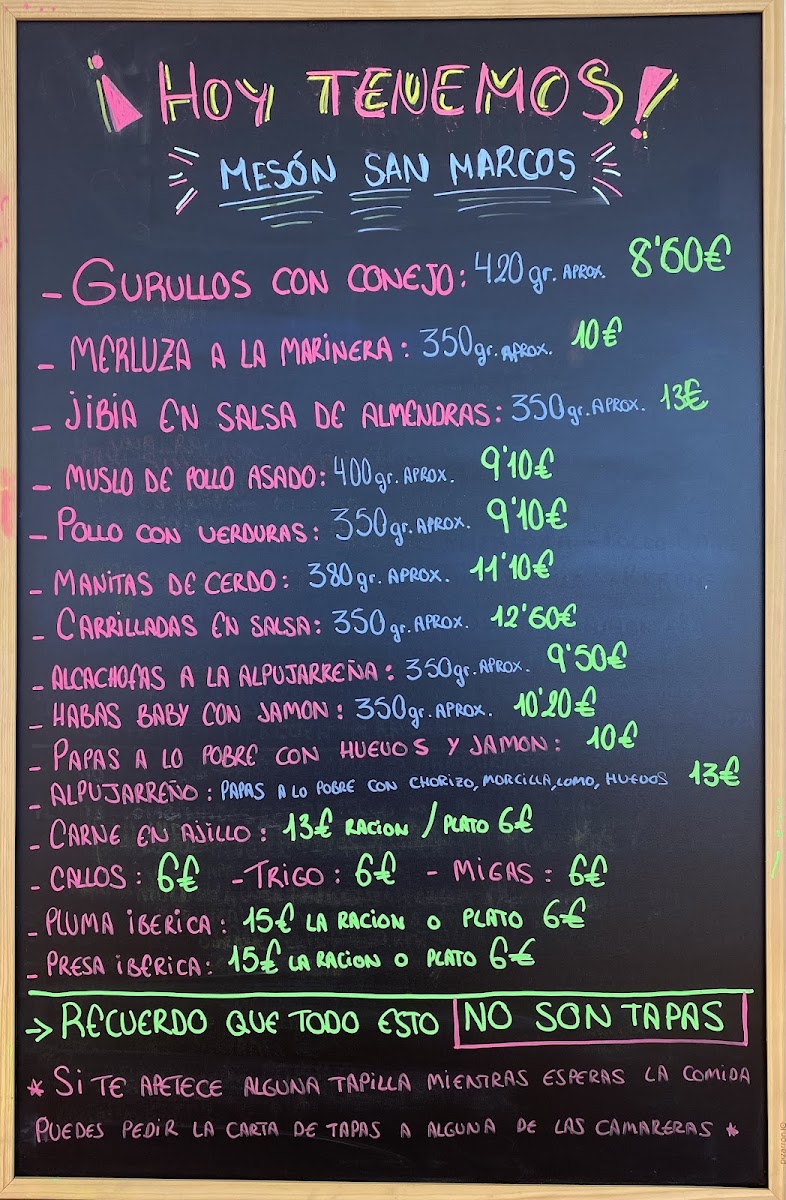 ¡HOY TENEMOS!
MESÓN SAN MARCOS
- GURULLOS CON CONEJO: 420gr. APROX. 8'60€
- MERLUZA A LA MARINERA: 350gr. APROX. 10€
- JIBIA EN SALSA DE ALMENDRAS: 350gr. APROX. 13€
- MUSLO DE POLLO ASADO: 400gr. APROX. 9'10€
- POLLO CON VERDURAS: 350gr. APROX. 9'10€
- MANITAS DE CERDO: 380gr. APROX. 11'10€
- CARRILLADAS EN SALSA: 350gr. APROX. 12'60€
- ALCACHOFAS A LA ALPUJARREÑA: 350gr. APROX. 9'50€
- HABAS BABY CON JAMON: 350gr. APROX. 10'20€
- PAPAS A LO POBRE CON HUEVOS Y JAMON: 10€
- ALPUJARREÑO: PAPAS A LO POBRE CON CHORIZO, MORCILLA, LOMO, HUEVOS 13€
- CARNE EN AJILLO: 13€ RACION / PLATO 6€
- CALLOS: 6€ - TRIGO: 6€ - MIGAS: 6€
- PLUMA IBERICA: 15€ LA RACION O PLATO 6€
- PRESA IBERICA: 15€ LA RACION O PLATO 6€
→ RECUERDO QUE TODO ESTO NO SON TAPAS
* SI TE APETECE ALGUNA TAPILLA MIENTRAS ESPERAS LA COMIDA
PUEDES PEDIR LA CARTA DE TAPAS A ALGUNA DE LAS CAMARERAS *